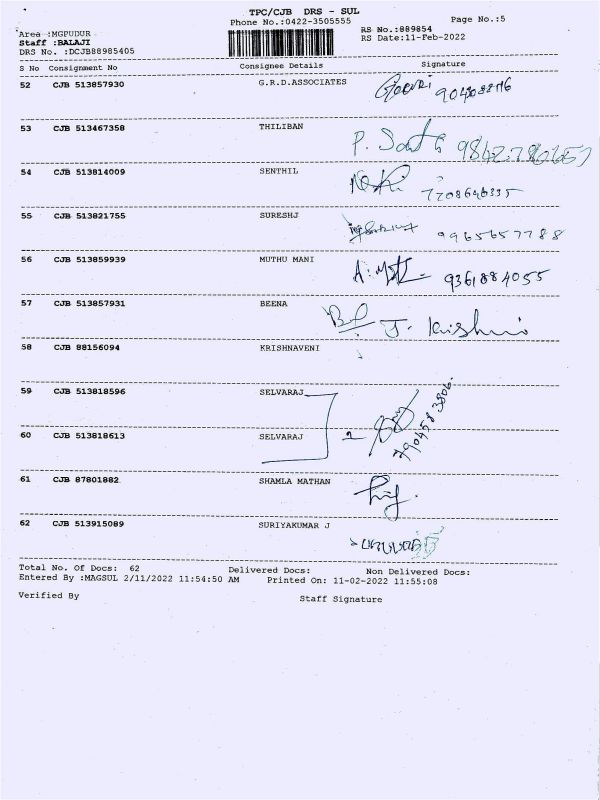 TPC/CJB DRS - SUL
Phone No.:0422-3505555
Page No.:5
Area :MGPUDUR
RS No.:889854
Staff :BALAJI
RS Date:11-Feb-2022
DRS No. :DCJB88985405
S No Consignment No Consignee Details Signature
52 CJB 513857930 G.R.D.ASSOCIATES
53 CJB 513467358 THILIBAN
P.
54 CJB 513814009 SENTHIL
55 CJB 513821755 SURESHJ
9965657788
56 CJB 513859939 MUTHU MANI
9361884055
57 CJB 513857931 BEENA
J.
58 CJB 88156094 KRISHNAVENI
59 CJB 513818596 SELVARAJ
7904583806.
60 CJB 513818613 SELVARAJ
61 CJB 87801882 SHAMLA MATHAN
62 CJB 513915089 SURIYAKUMAR J
Total No. Of Docs: 62 Delivered Docs: Non Delivered Docs:
Entered By :MAGSUL 2/11/2022 11:54:50 AM Printed On: 11-02-2022 11:55:08
Verified By Staff Signature